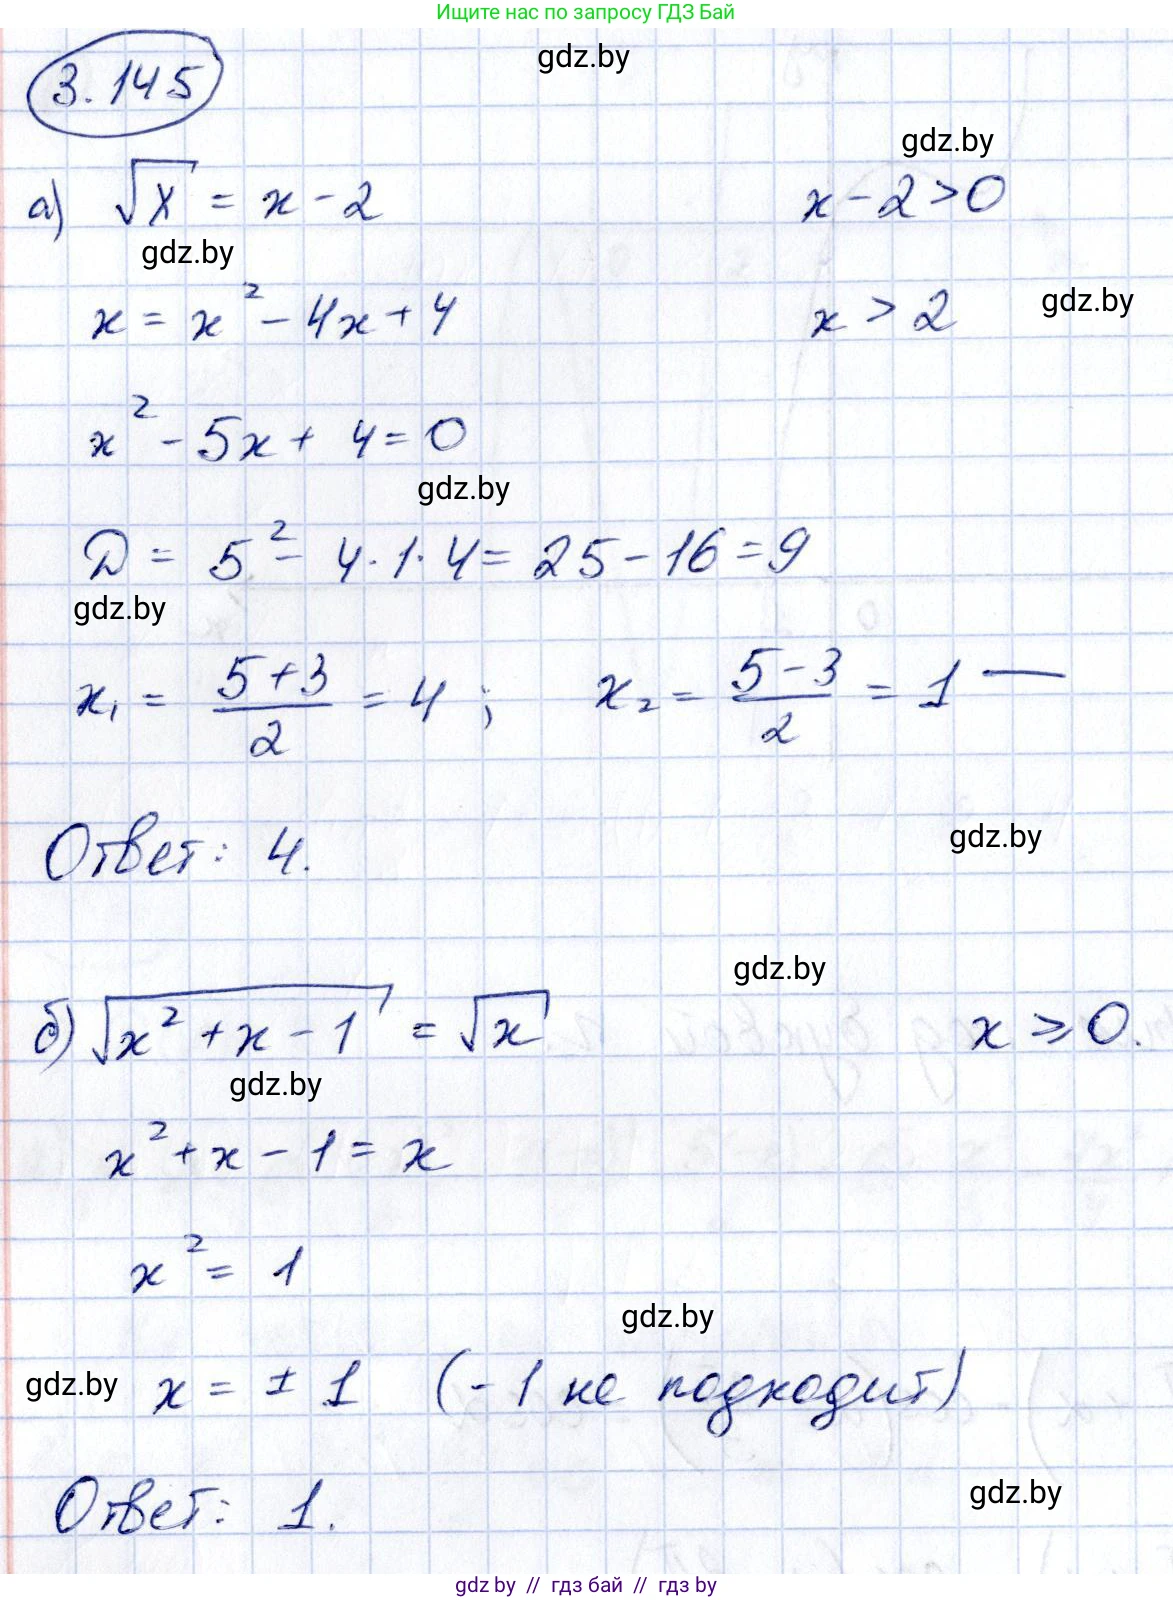 Ищите нас по запросу ГДЗ Бай
gdz.by
3.145
gdz.by
а) √x = x - 2
x - 2 > 0
gdz.by
x = x² - 4x + 4
x > 2
gdz.by
x² - 5x + 4 = 0
gdz.by
D = 5² - 4·1·4 = 25 - 16 = 9
gdz.by
x₁ = (5+3)/2 = 4 ; x₂ = (5-3)/2 = 1 —
Ответ: 4.
gdz.by
gdz.by
б) √(x² + x - 1) = √x
x ⩾ 0.
gdz.by
x² + x - 1 = x
x² = 1
gdz.by
gdz.by
x = ± 1 (-1 не подходит)
Ответ: 1.
gdz.by
gdz by // гдз бай // gdz by